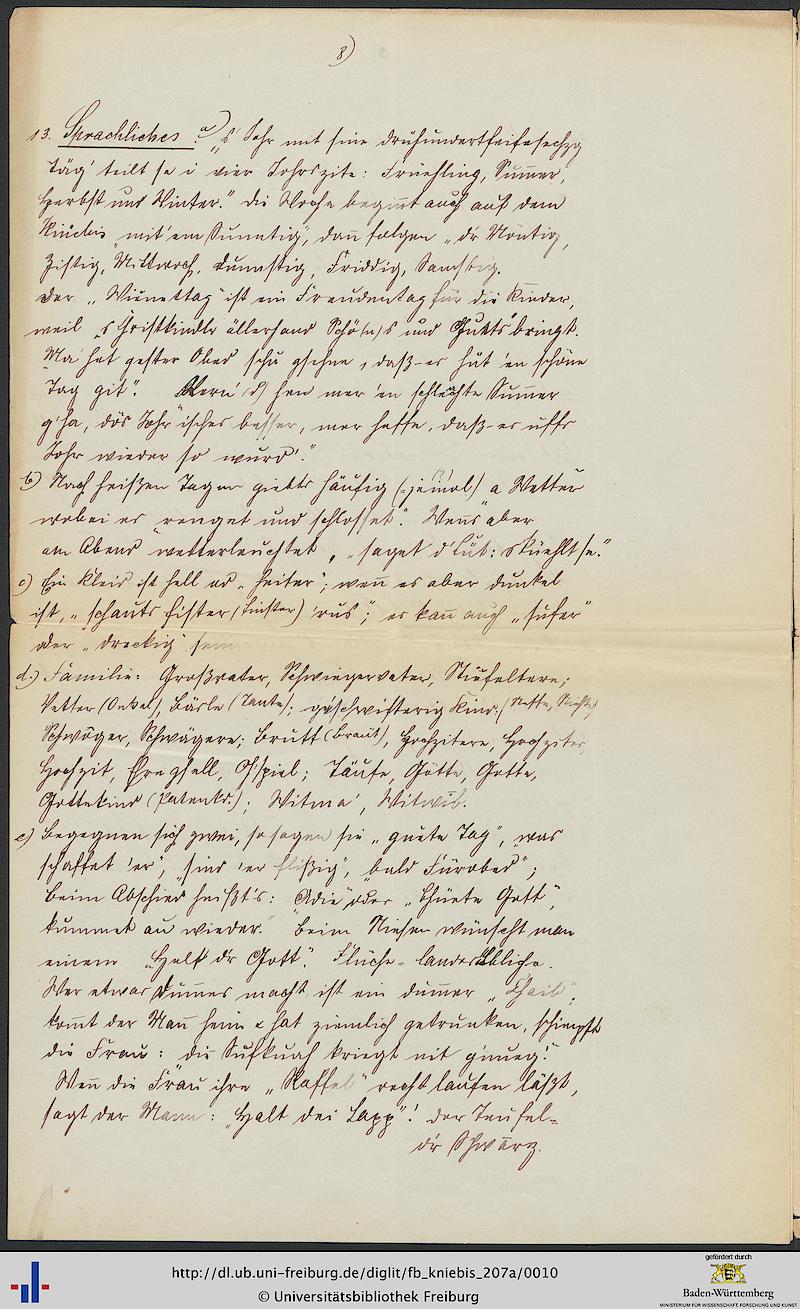 8)
13. Sprachliches: a) „'s Johr mit sine druhundertfeifesechzg
Täg' teilt se i vier Johrszite: Früehling, Summer,
Herbst und Winter." Die Woche beginnt auch auf dem
Kniebis „mit'em Sunntig", dann folgen „d'r Möntig,
Zistig, Mittwoch, Dunnstig, Friddig, Samstig.
Der „Wienettag" ist ein Freudentag für die Kinder,
weil „'s Christkindle ällerhand Schö(n)s und Guets" bringt.
„Ma het gester Obed schu gsehne, daß-es hüt 'en schöne
Tag git". hen mer 'en schlechte Summer
g'ha, dös Johr isches besser, mer hoffe, daß-es uffs
Johr wieder so wurd'."
b) Nach heißen Tagen giebts häufig (=jeimol) (?) a Wetter
wobei es „renget und schlosset". Wenns aber
am Abend wetterleuchtet, „saget d'Lüt: s'küehlt se."
c) Ein Kleid ist hell od „heiter"; wenn es aber dunkel
ist, „schauts fister (finster) 'rus"; es kann auch „sufer"
oder „dreckig" sein
d.) Familie: Großvater, Schwiegervater, Stiefeltere;
Vetter (Onkel), Bäsle (Tante); g'schwisterig Kind: (Neffe, Nichte)
Schwöger, Schwägere; Brutt (Braut), Hochzitere, Hochziter,
Hochzit, Ehregsell, G'spiel; Täufe, Götte, Gotte,
Gottekind (Patenkd.); Witma', Witwib.
e) Begegnen sich zwei, so sagen sie „guete Tag", „was
schaffet 'er", „sind 'er flißig", „bald Fürobed";
beim Abschied heißt's: „Adie" oder „Bhüete Gott",
„kummet au wieder." Beim Niesen wünscht man
einem „Helf d'r Gott". Flüche = landesübliche.
Wer etwas Dummes macht ist ein dummer „Chaib";
kommt der Mann heim & hat ziemlich getrunken, schimpft
die Frau: „die Sufkuah kriegt nit g'nueg!"
Wenn die Frau ihre „Raffel" recht laufen läßt,
sagt der Mann: „Halt dei Lapp"! der Teufel =
d'r Schwarz.
http://dl.ub.uni-freiburg.de/diglit/fb_kniebis_207a/0010
© Universitätsbibliothek Freiburg
gefördert durch
Baden-Württemberg
MINISTERIUM FÜR WISSENSCHAFT, FORSCHUNG UND KUNST